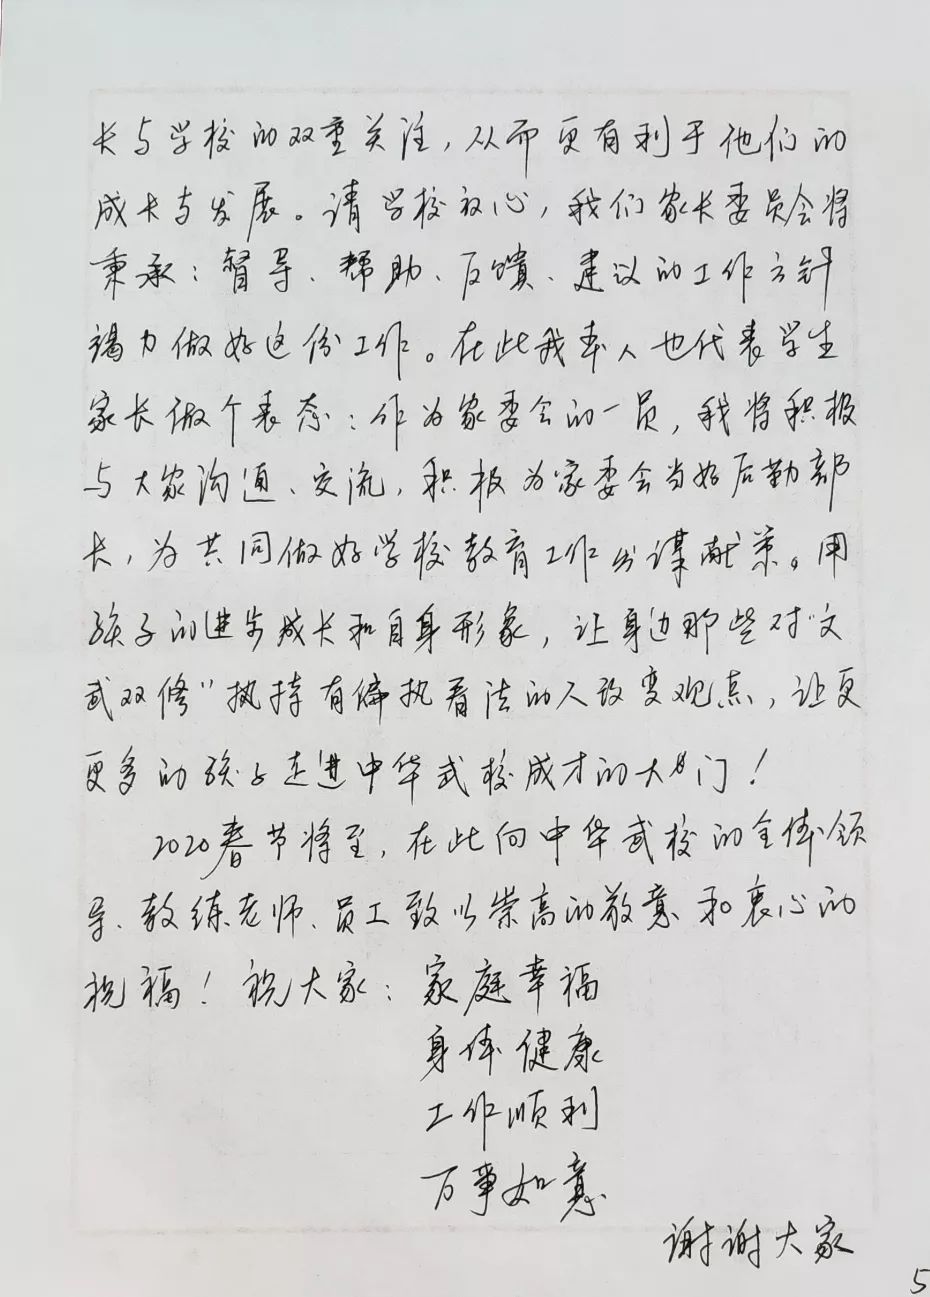 长与学校的双重关注，从而更有利于他们的
成长与发展。请学校放心，我们家长委员会将
秉承：督导、帮助、反馈、建议的工作方针
竭力做好这份工作。在此我本人也代表学生
家长做个表态：作为家委会的一员，我将积极
与大家沟通、交流，积极为家委会当好后勤部
长，为共同做好学校教育工作出谋献策。用
孩子的进步成长和自身形象，让身边那些对“文
武双修”执持有偏执看法的人改变观点，让更
更多的孩子走进中华武校成才的大门！
2020春节将至，在此向中华武校的全体领
导、教练老师、员工致以崇高的敬意和衷心的
祝福！祝大家：家庭幸福
身体健康
工作顺利
万事如意
谢谢大家
5